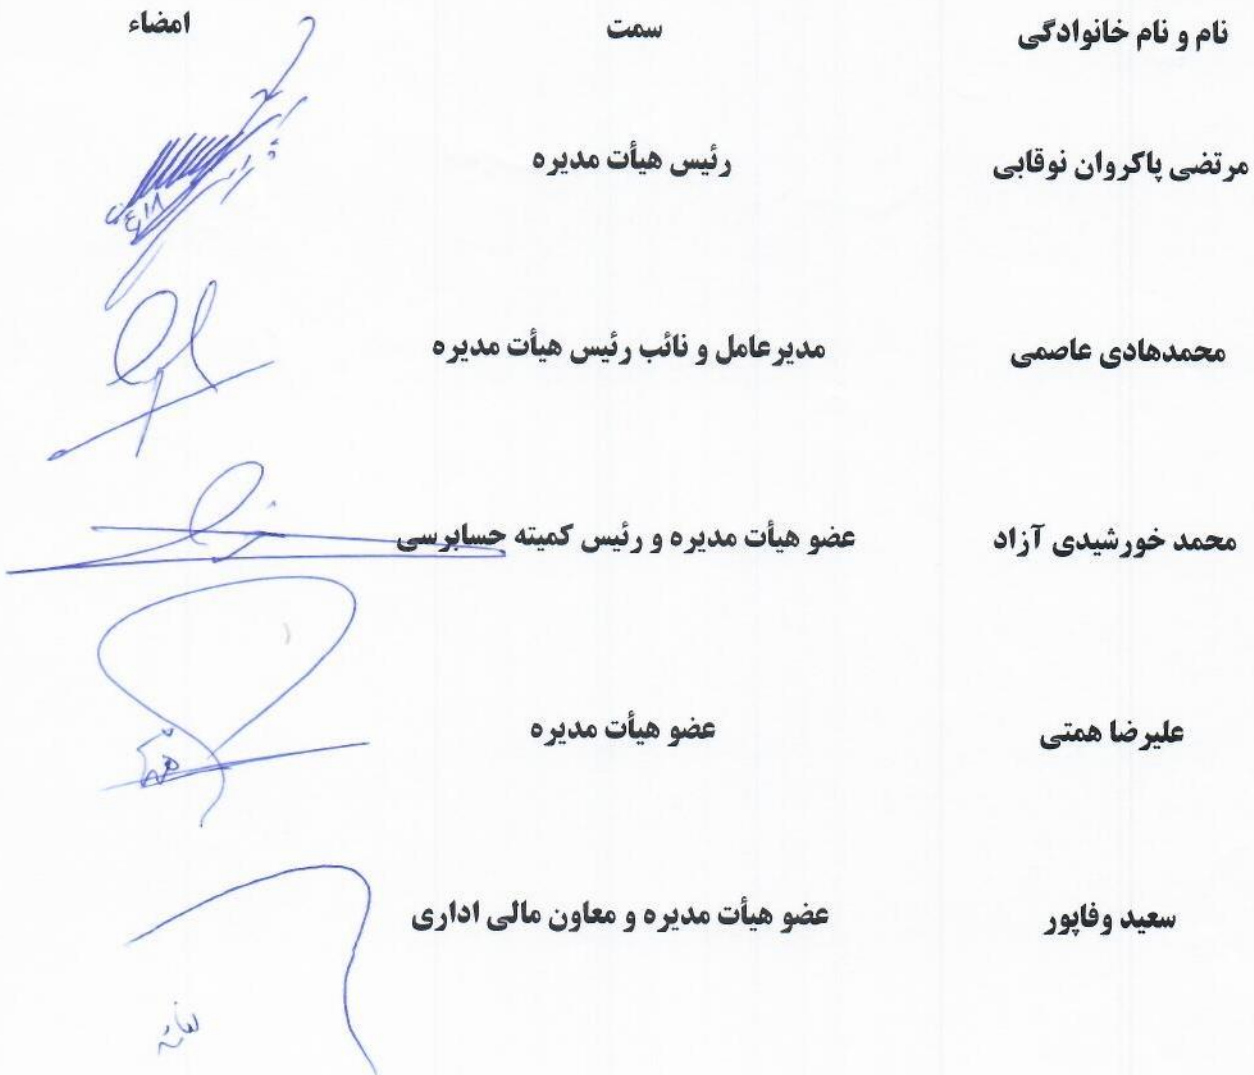 نام و نام خانوادگی سمت امضاء
مرتضی پاکروان نوقابی رئیس هیأت مدیره
محمدهادی عاصمی مدیرعامل و نائب رئیس هیأت مدیره
محمد خورشیدی آزاد عضو هیأت مدیره و رئیس کمیته حسابرسی
علیرضا همتی عضو هیأت مدیره
سعید وفاپور عضو هیأت مدیره و معاون مالی اداری